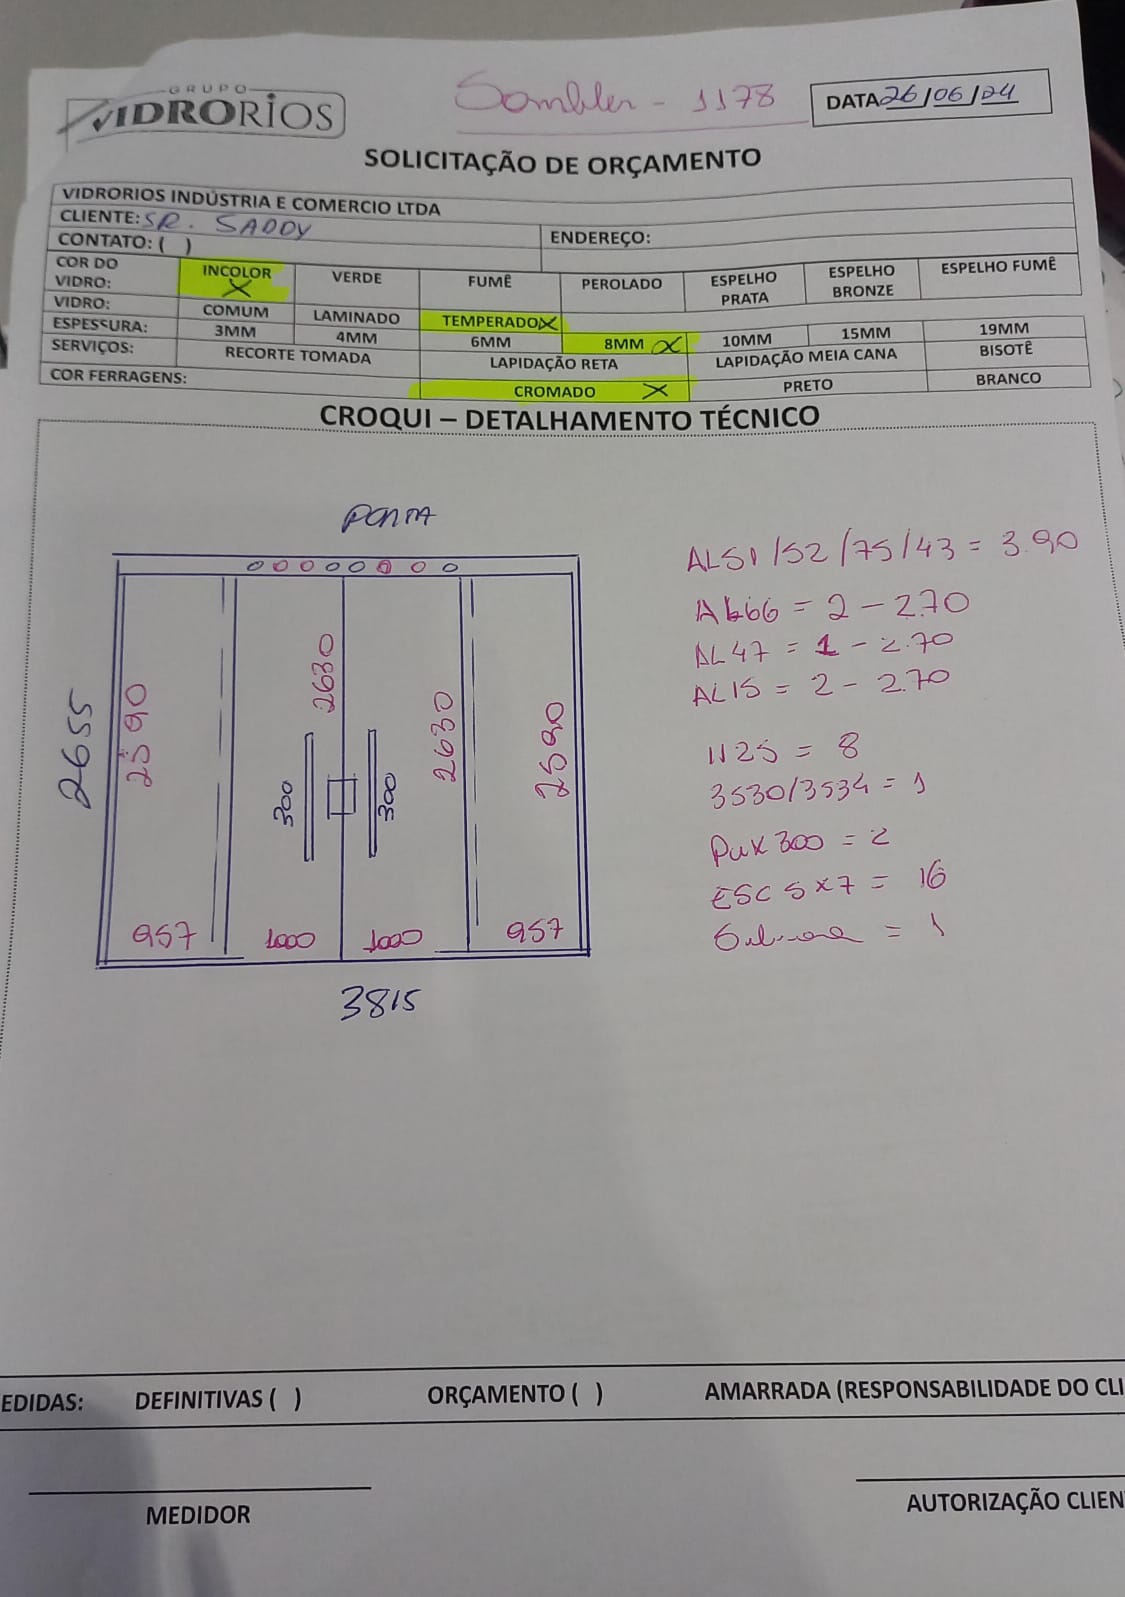 GRUPO
VIDRORIOS
Sombler - 1178
DATA 26/06/24
SOLICITAÇÃO DE ORÇAMENTO
VIDRORIOS INDÚSTRIA E COMERCIO LTDA
CLIENTE: SR. SADDY
CONTATO: ( )
ENDEREÇO:
COR DO VIDRO: INCOLOR X VERDE FUMÊ PEROLADO ESPELHO PRATA ESPELHO BRONZE ESPELHO FUMÊ
VIDRO: COMUM LAMINADO TEMPERADO X
ESPESSURA: 3MM 4MM 6MM 8MM X 10MM 15MM 19MM
SERVIÇOS: RECORTE TOMADA LAPIDAÇÃO RETA LAPIDAÇÃO MEIA CANA BISOTÊ
COR FERRAGENS: CROMADO X PRETO BRANCO
CROQUI – DETALHAMENTO TÉCNICO
PORTA
2655
2590
2630
2630
2590
300
300
957
1000
1000
957
3815
AL51/52/75/43 = 3.90
AL66 = 2 - 2.70
AL47 = 1 - 2.70
AL15 = 2 - 2.70
1125 = 8
3530/3534 = 1
PUX 300 = 2
ESC 5x7 = 16
= 1
EDIDAS: DEFINITIVAS ( ) ORÇAMENTO ( ) AMARRADA (RESPONSABILIDADE DO CLI
MEDIDOR
AUTORIZAÇÃO CLIEN